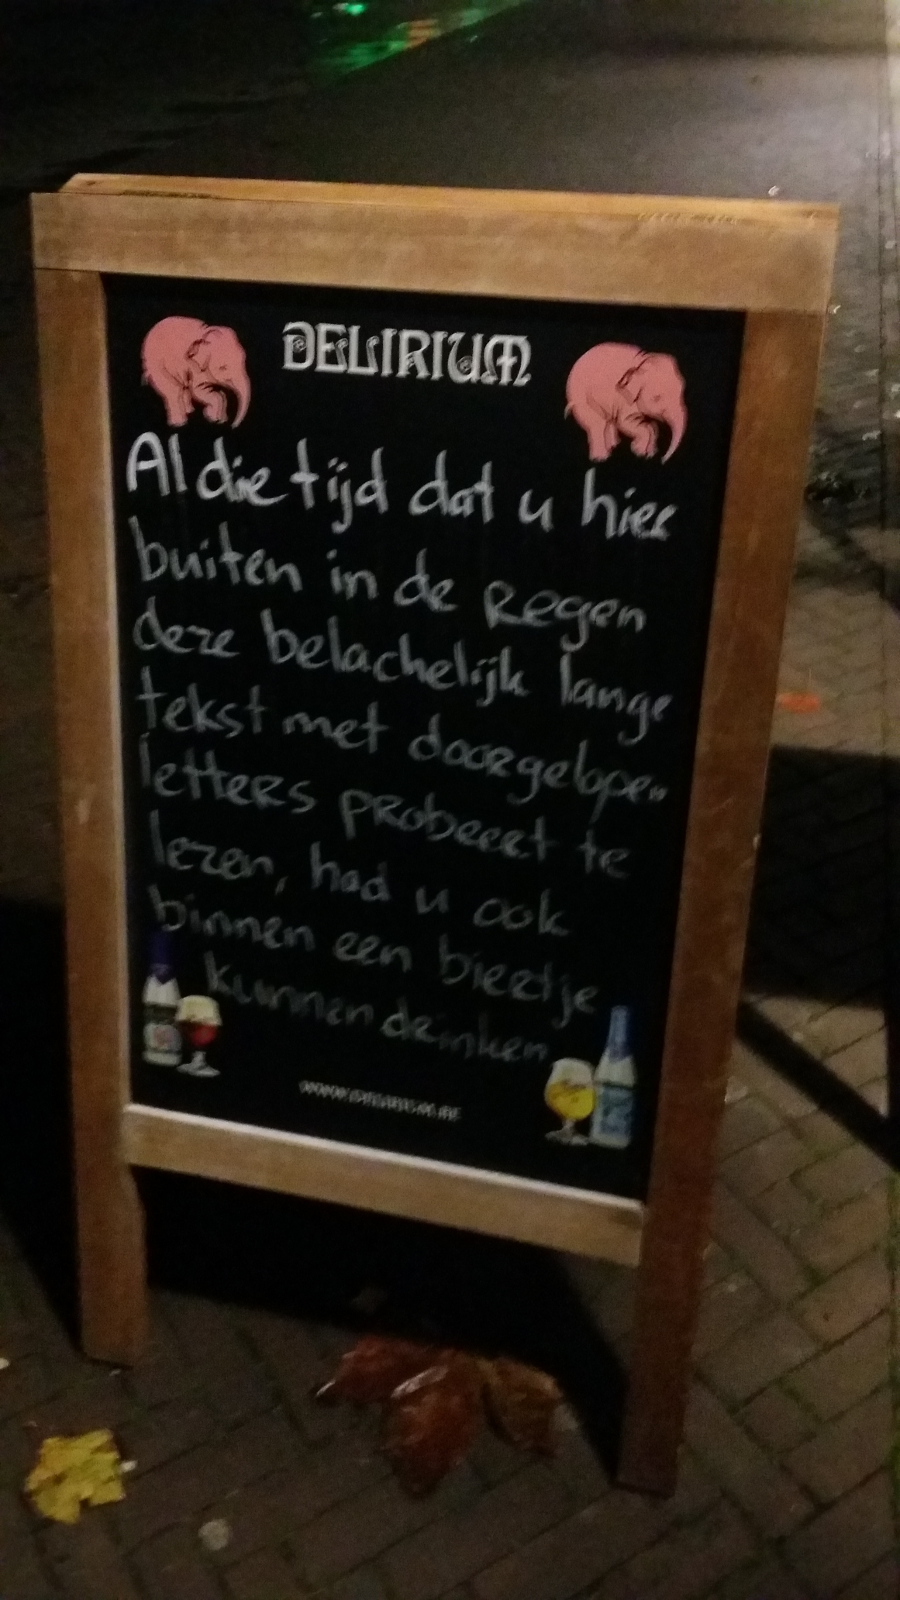 DELIRIUM
Al die tijd dat u hier
buiten in de Regen
deze belachelijk lange
tekst met doorgelopen
letters probeert te
lezen, had u ook
binnen een biertje
kunnen drinken
WWW.DELIRIUM.BE